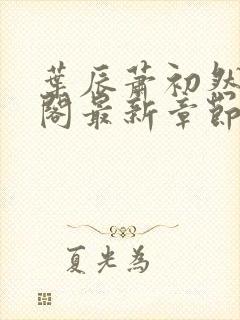 葉辰蕭初然
閣最新章節
夏光為